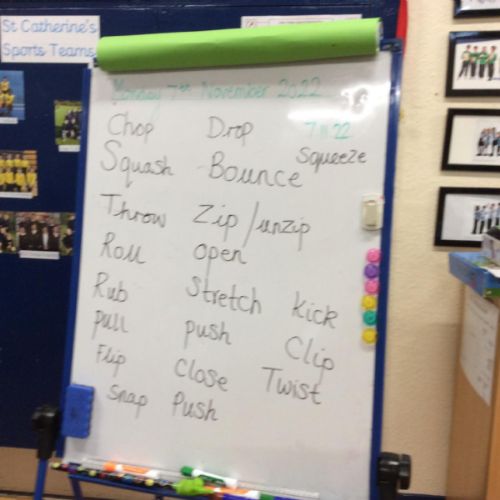 St Catherine's
Sports Teams
Monday 7th November 2022
Chop Drop 7.11.22
Squash Bounce Squeeze
Throw Zip/unzip
Roll open
Rub Stretch Kick
pull push Clip
Flip Close Twist
Snap Push